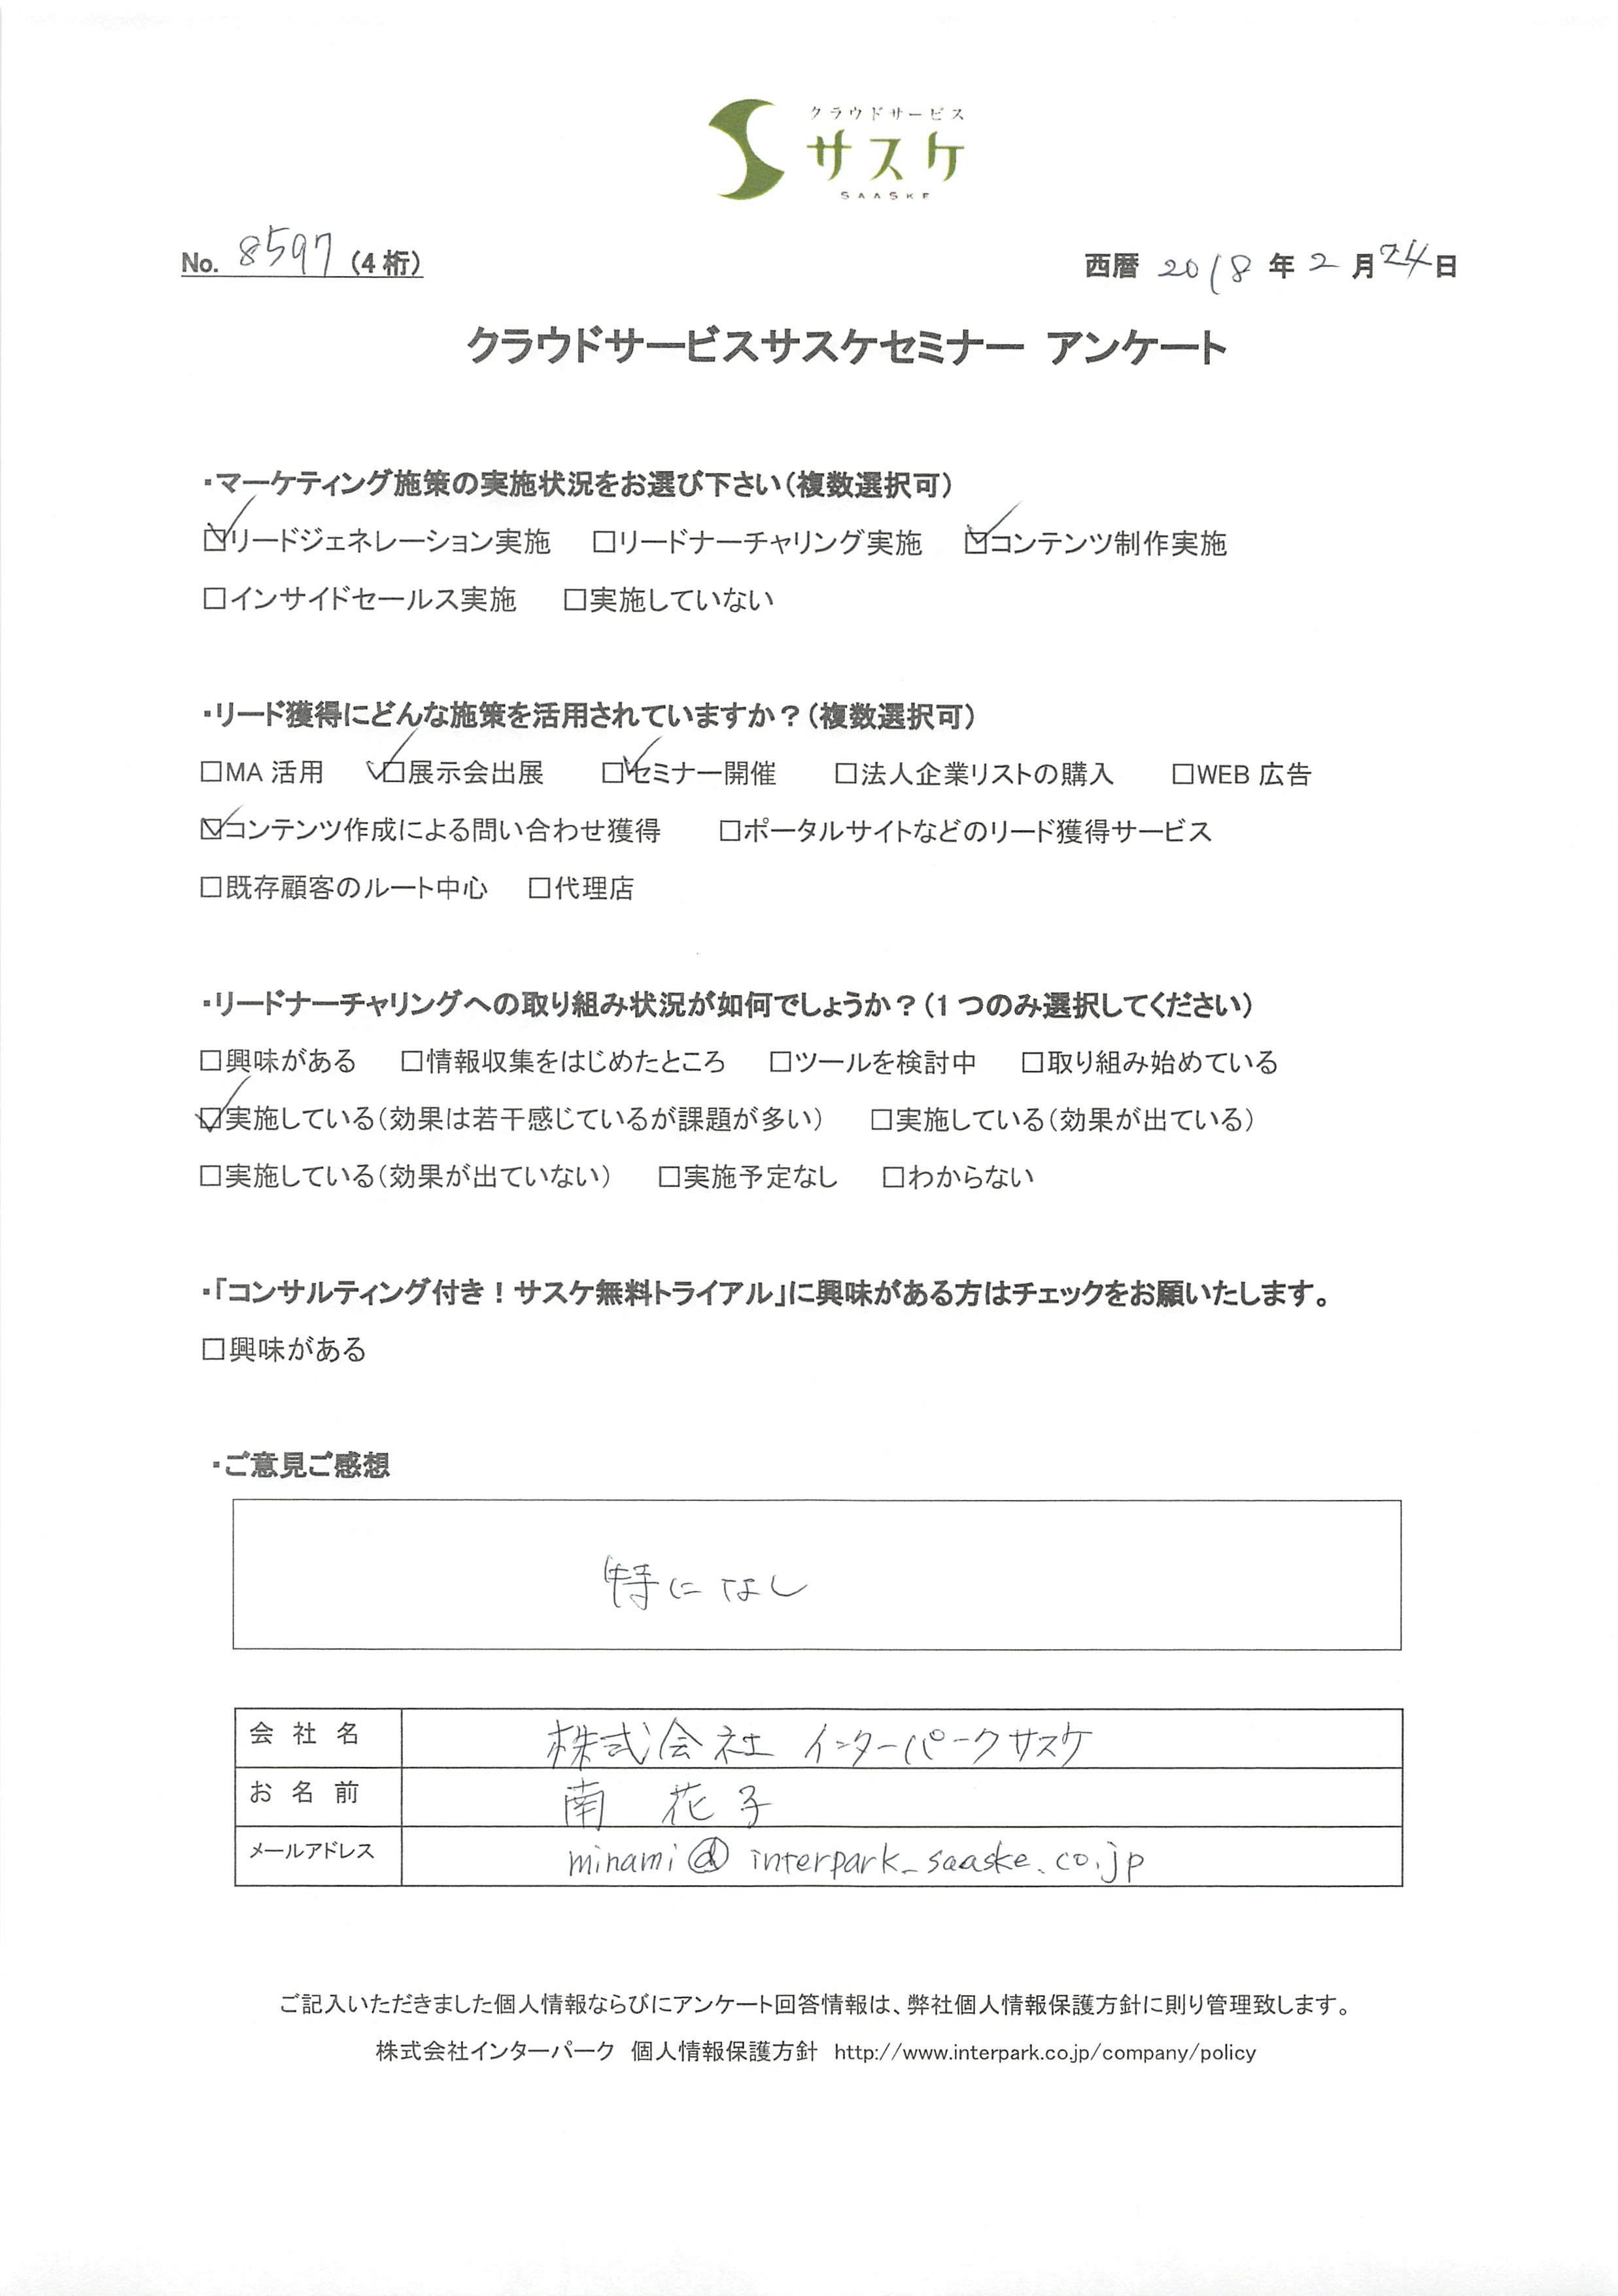 クラウドサービス
サスケ
SAASKE
No. 8597 (4桁)
西暦 2018 年 2 月 24 日
クラウドサービスサスケセミナー アンケート
・マーケティング施策の実施状況をお選び下さい(複数選択可)
☑リードジェネレーション実施 □リードナーチャリング実施 ☑コンテンツ制作実施
□インサイドセールス実施 □実施していない
・リード獲得にどんな施策を活用されていますか?(複数選択可)
□MA 活用 ☑展示会出展 ☑セミナー開催 □法人企業リストの購入 □WEB 広告
☑コンテンツ作成による問い合わせ獲得 □ポータルサイトなどのリード獲得サービス
□既存顧客のルート中心 □代理店
・リードナーチャリングへの取り組み状況が如何でしょうか?(1 つのみ選択してください)
□興味がある □情報収集をはじめたところ □ツールを検討中 □取り組み始めている
☑実施している(効果は若干感じているが課題が多い) □実施している(効果が出ている)
□実施している(効果が出ていない) □実施予定なし □わからない
・「コンサルティング付き!サスケ無料トライアル」に興味がある方はチェックをお願いたします。
□興味がある
・ご意見ご感想
特になし
会 社 名 株式会社 インターパークサスケ
お 名 前 南 花子
メールアドレス minami@interpark_saaske.co.jp
ご記入いただきました個人情報ならびにアンケート回答情報は、弊社個人情報保護方針に則り管理致します。
株式会社インターパーク 個人情報保護方針 http://www.interpark.co.jp/company/policy